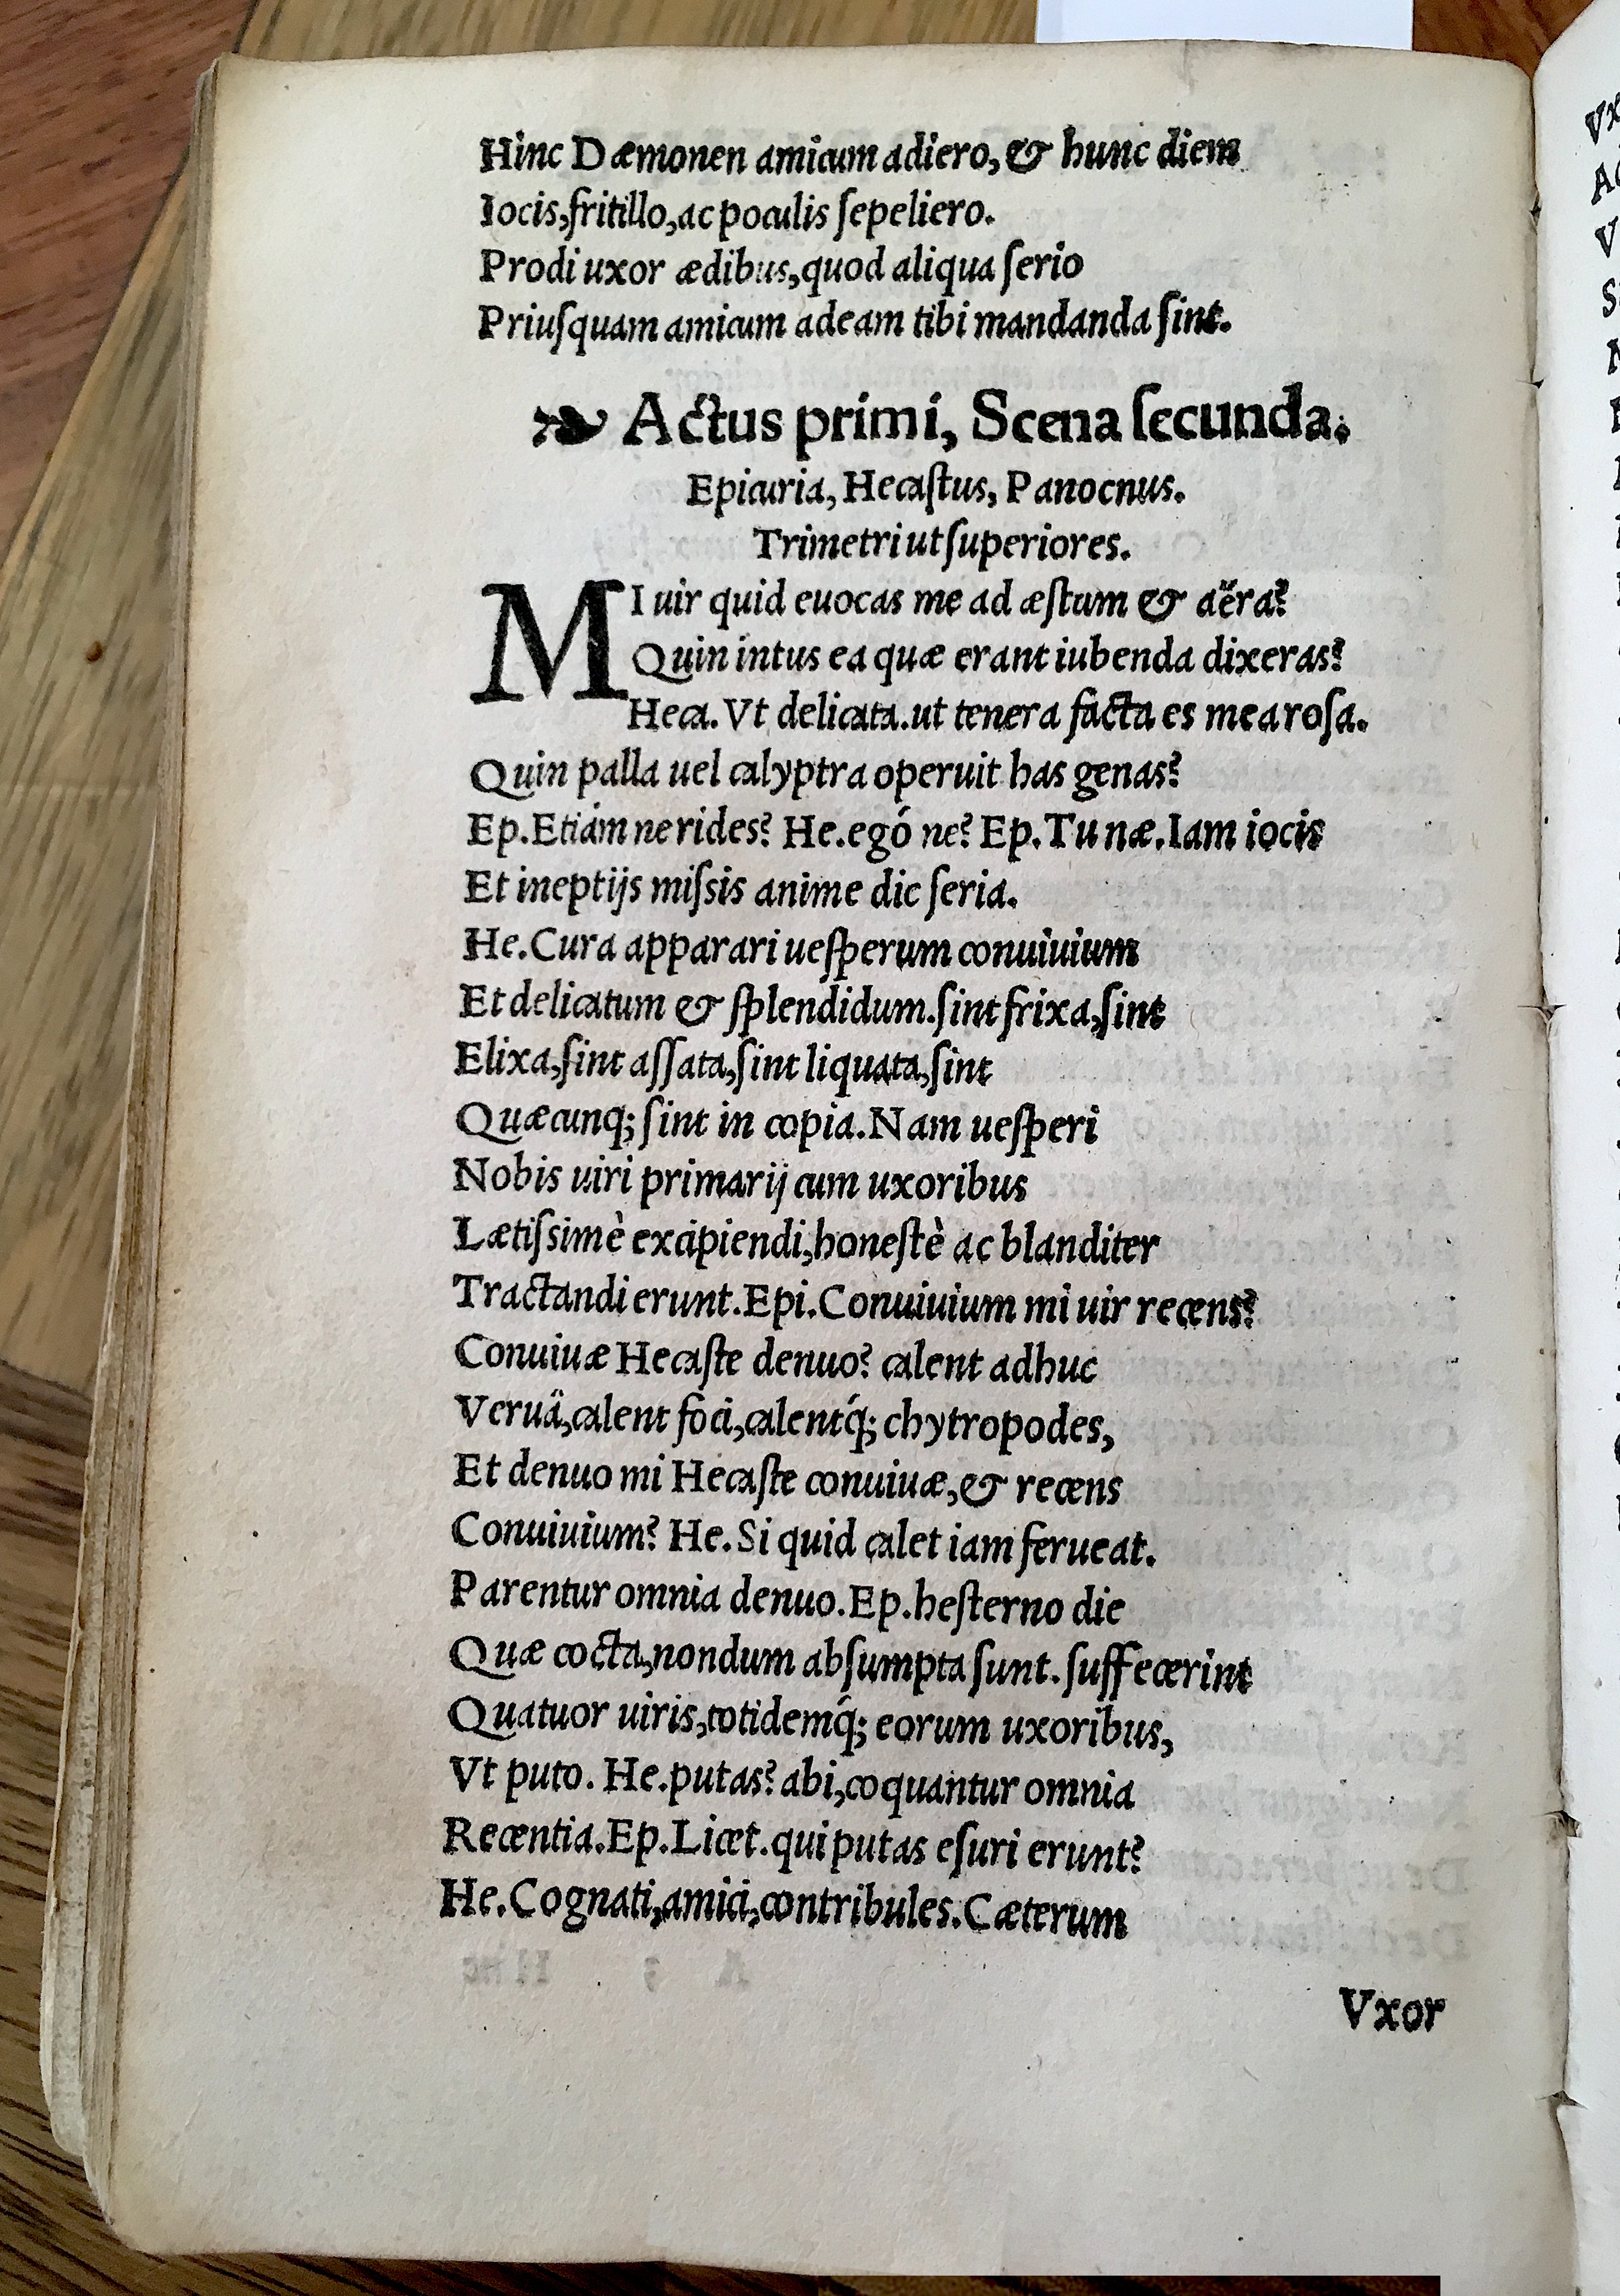 Hinc Dæmonen amicum adiero, & hunc diem
Iocis, fritillo, ac poculis ſepeliero.
Prodi uxor ædibus, quod aliqua ſerio
Priuſquam amicum adeam tibi mandanda ſint.
❧ Actus primi, Scena ſecunda.
Epicuria, Hecaſtus, Panocnus.
Trimetri ut ſuperiores.
MI uir quid euocas me ad æſtum & aëra?
Quin intus ea quæ erant iubenda dixeras?
Heca. Vt delicata. ut tenera facta es mea roſa.
Quin palla uel calyptra operuit has genas?
Ep. Etiám ne rides? He. egó ne? Ep. Tu næ. Iam iocis
Et ineptijs miſsis anime dic ſeria.
He. Cura apparari ueſperum conuiuium
Et delicatum & ſplendidum. ſint frixa, ſint
Elixa, ſint aſſata, ſint liquata, ſint
Quæcunq; ſint in copia. Nam ueſperi
Nobis uiri primarij cum uxoribus
Lætiſsimè excipiendi, honeſtè ac blanditer
Tractandi erunt. Epi. Conuiuium mi uir recens?
Conuiuæ Hecaſte denuo? calent adhuc
Veruä, calent foci, calentq́; chytropodes,
Et denuo mi Hecaſte conuiuæ, & recens
Conuiuium? He. Si quid calet iam ferueat.
Parentur omnia denuo. Ep. heſterno die
Quæ cocta, nondum abſumpta ſunt. ſuffecerint
Quatuor uiris, totidemq́; eorum uxoribus,
Vt puto. He. putas? abi, coquantur omnia
Recentia. Ep. Licet. qui putas eſuri erunt?
He. Cognati, amici, contribules. Cæterum
Vxor